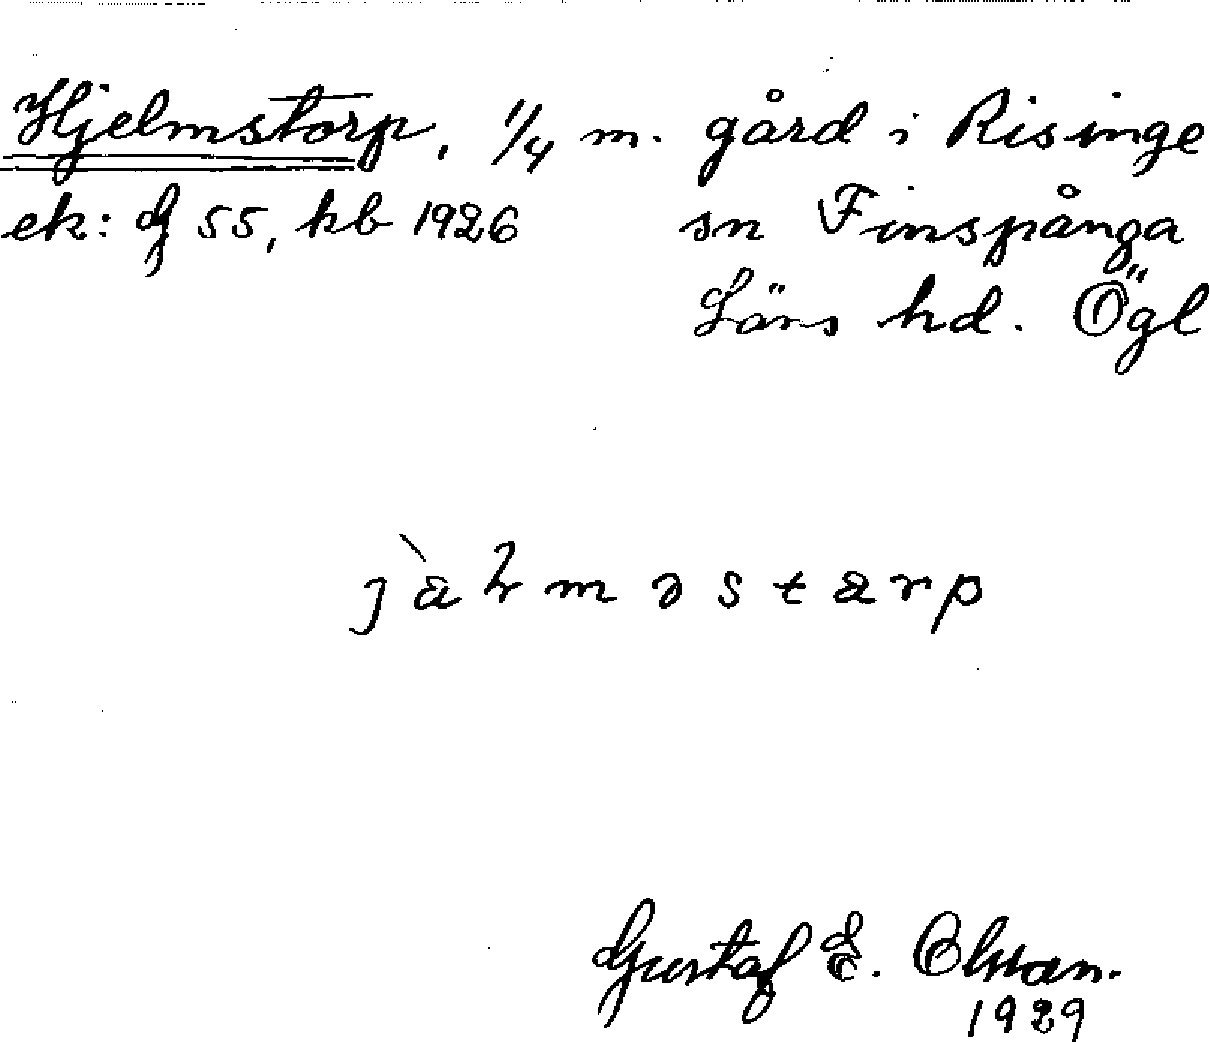 Hjelmstorp, 1/4 m. gård i Risinge
ek: df 55, kb 1926 sn Finspånga
Läns hd. Ögl
Gustaf E. Olsson.
1929